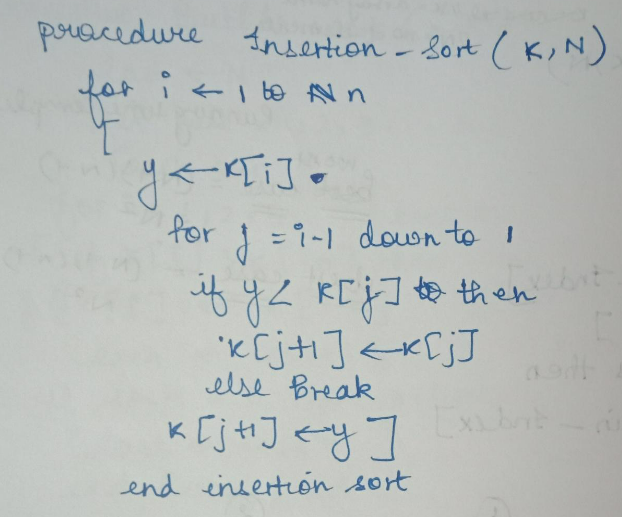 procedure Insertion-Sort (K, N)
for i ← 1 to n
[
y ← K[i].
for j = i-1 down to 1
if y < K[j] then
K[j+1] ← K[j]
else Break
K[j+1] ← y ]
end insertion sort